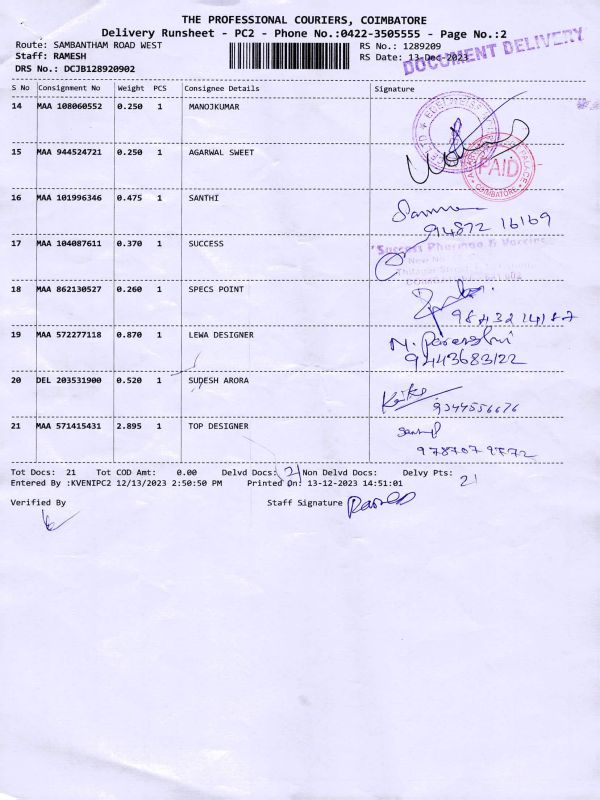 THE PROFESSIONAL COURIERS, COIMBATORE
Delivery Runsheet - PC2 - Phone No.:0422-3505555 - Page No.:2
Route: SAMBANTHAM ROAD WEST RS No.: 1289209
Staff: RAMESH RS Date: 13-Dec-2023
DOCUMENT DELIVERY
DRS No.: DCJB128920902
S No Consignment No Weight PCS Consignee Details Signature
14 MAA 108060552 0.250 1 MANOJKUMAR
15 MAA 944524721 0.250 1 AGARWAL SWEET
PAID
COIMBATORE
16 MAA 101996346 0.475 1 SANTHI
94872 16169
17 MAA 104087611 0.370 1 SUCCESS
Success Pharmaa & Vaccines
18 MAA 862130527 0.260 1 SPECS POINT
98432 14187
19 MAA 572277118 0.870 1 LEWA DESIGNER
9443683122
20 DEL 203531900 0.520 1 SUDESH ARORA
9344556676
21 MAA 571415431 2.895 1 TOP DESIGNER
Tot Docs: 21 Tot COD Amt: 0.00 Delvd Docs: 21 Non Delvd Docs: Delvy Pts: 21
Entered By :KVENIPC2 12/13/2023 2:50:50 PM Printed On: 13-12-2023 14:51:01
Verified By Staff Signature